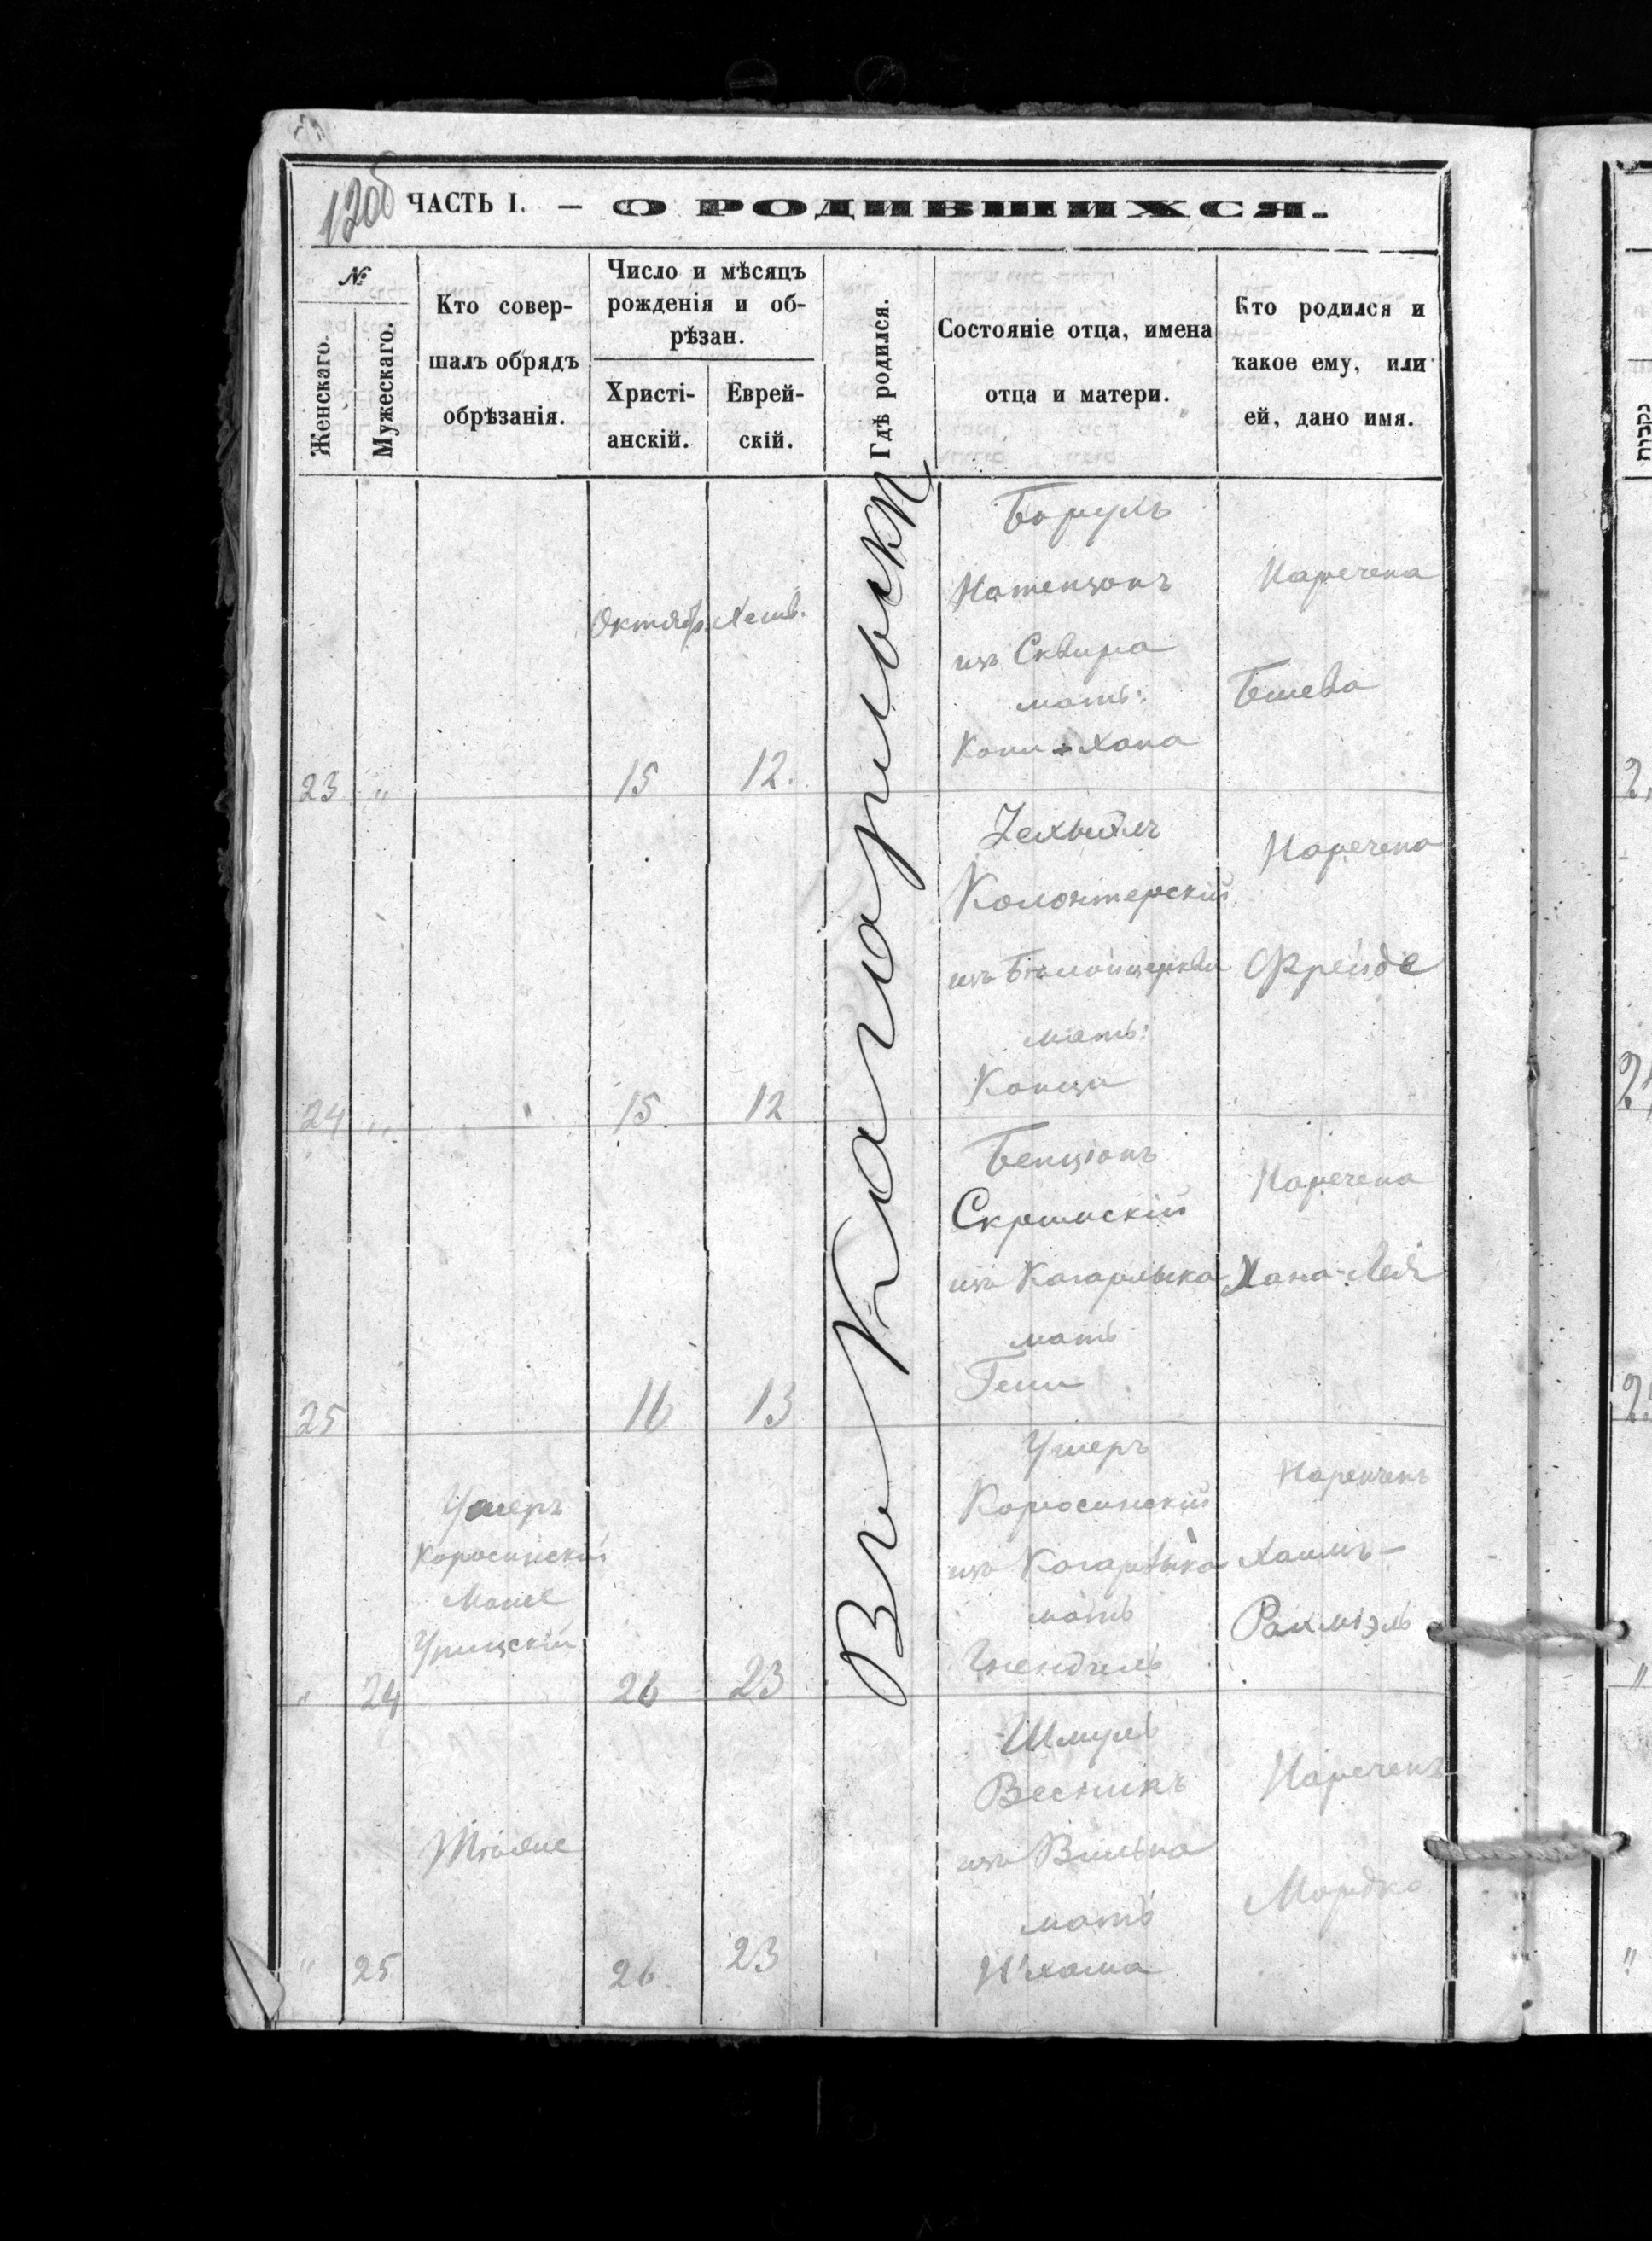 120об
ЧАСТЬ I. — О РОДИВШИХСЯ.
№
Женскаго.
Мужескаго.
Кто совер-
шалъ обрядъ
обрѣзанія.
Число и мѣсяцъ
рожденія и об-
рѣзан.
Христі-
анскій.
Еврей-
скій.
Гдѣ родился.
Состояніе отца, имена
отца и матери.
Кто родился и
какое ему, или
ей, дано имя.
Въ Кагарлыкѣ
23 "
Октябр. Хешв.
15 12.
Борухъ
Натензонъ
изъ Сквира
мать:
Хана
Наречена
Бшева
24 "
15 12
Колонтерскій
изъ Бѣлойцеркви
мать:
Наречена
Фрейда
25
16 13
Бенціонъ
изъ Кагарлыка
мать
Наречена
Хана-Лея
" 24
Ушеръ
Коросинскій
Моше
Урицскій
26 23
Ушеръ
Коросинскій
изъ Кагарлыка
мать
Гнендиль
Нареченъ
Хаимъ-
Рахміэль
" 25
26 23
Шмуль
Весникъ
изъ Вильна
мать
Н'хама
Нареченъ
Мордко